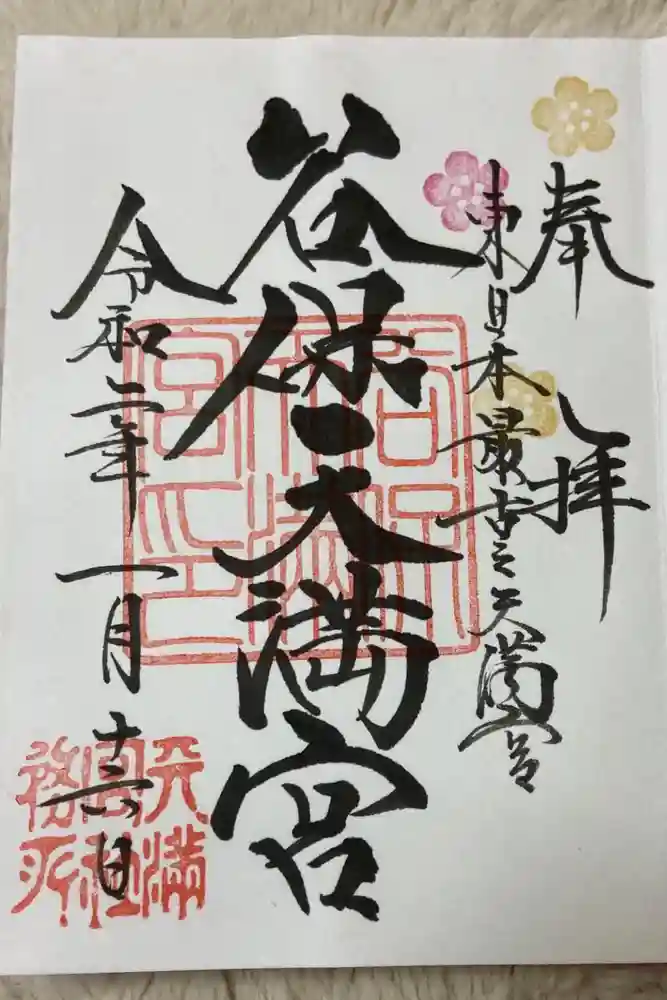 奉拝
東日本最古之天満宮
谷保天満宮
令和二年一月十六日
谷保天満宮之印
天満宮社務所